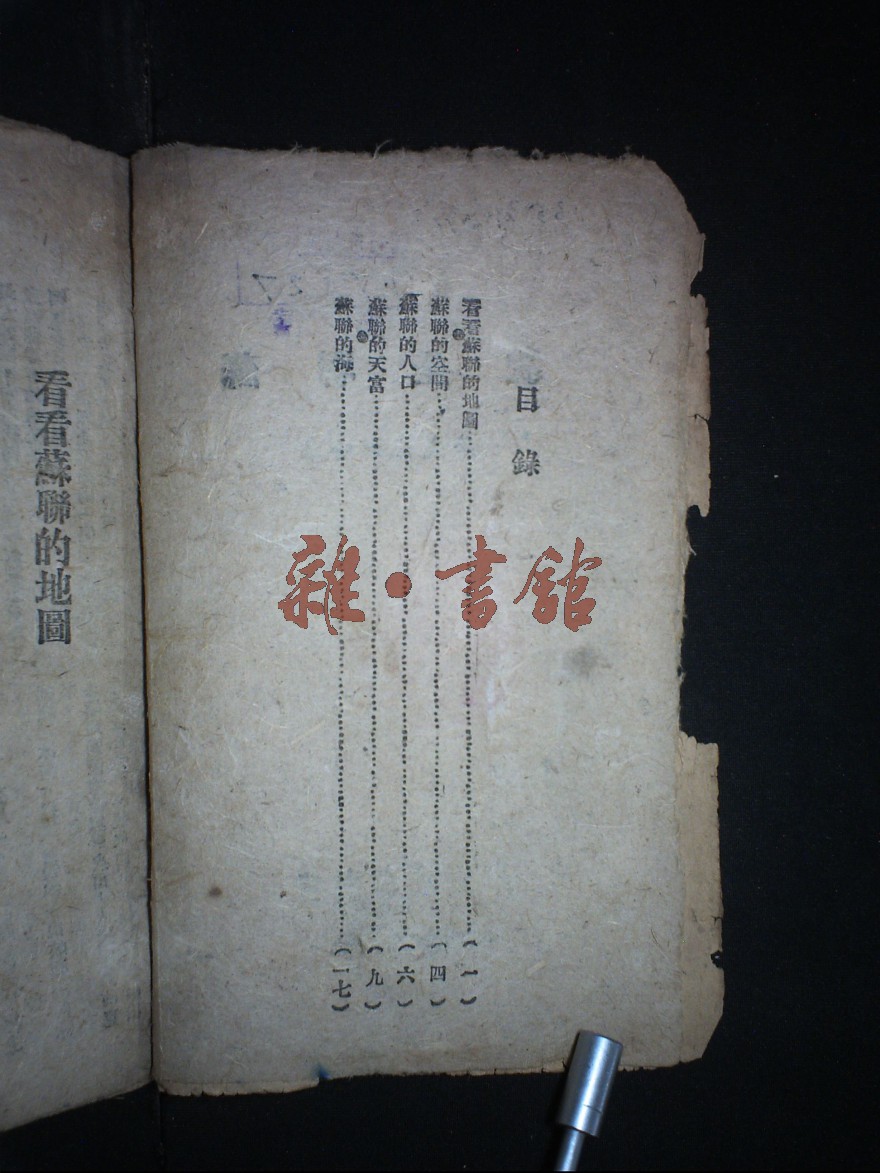 目錄
看看蘇聯的地圖……(一)
蘇聯的空間……(四)
蘇聯的人口……(六)
蘇聯的天富……(九)
蘇聯的海……(一七)
看看蘇聯的地圖
雜·書館